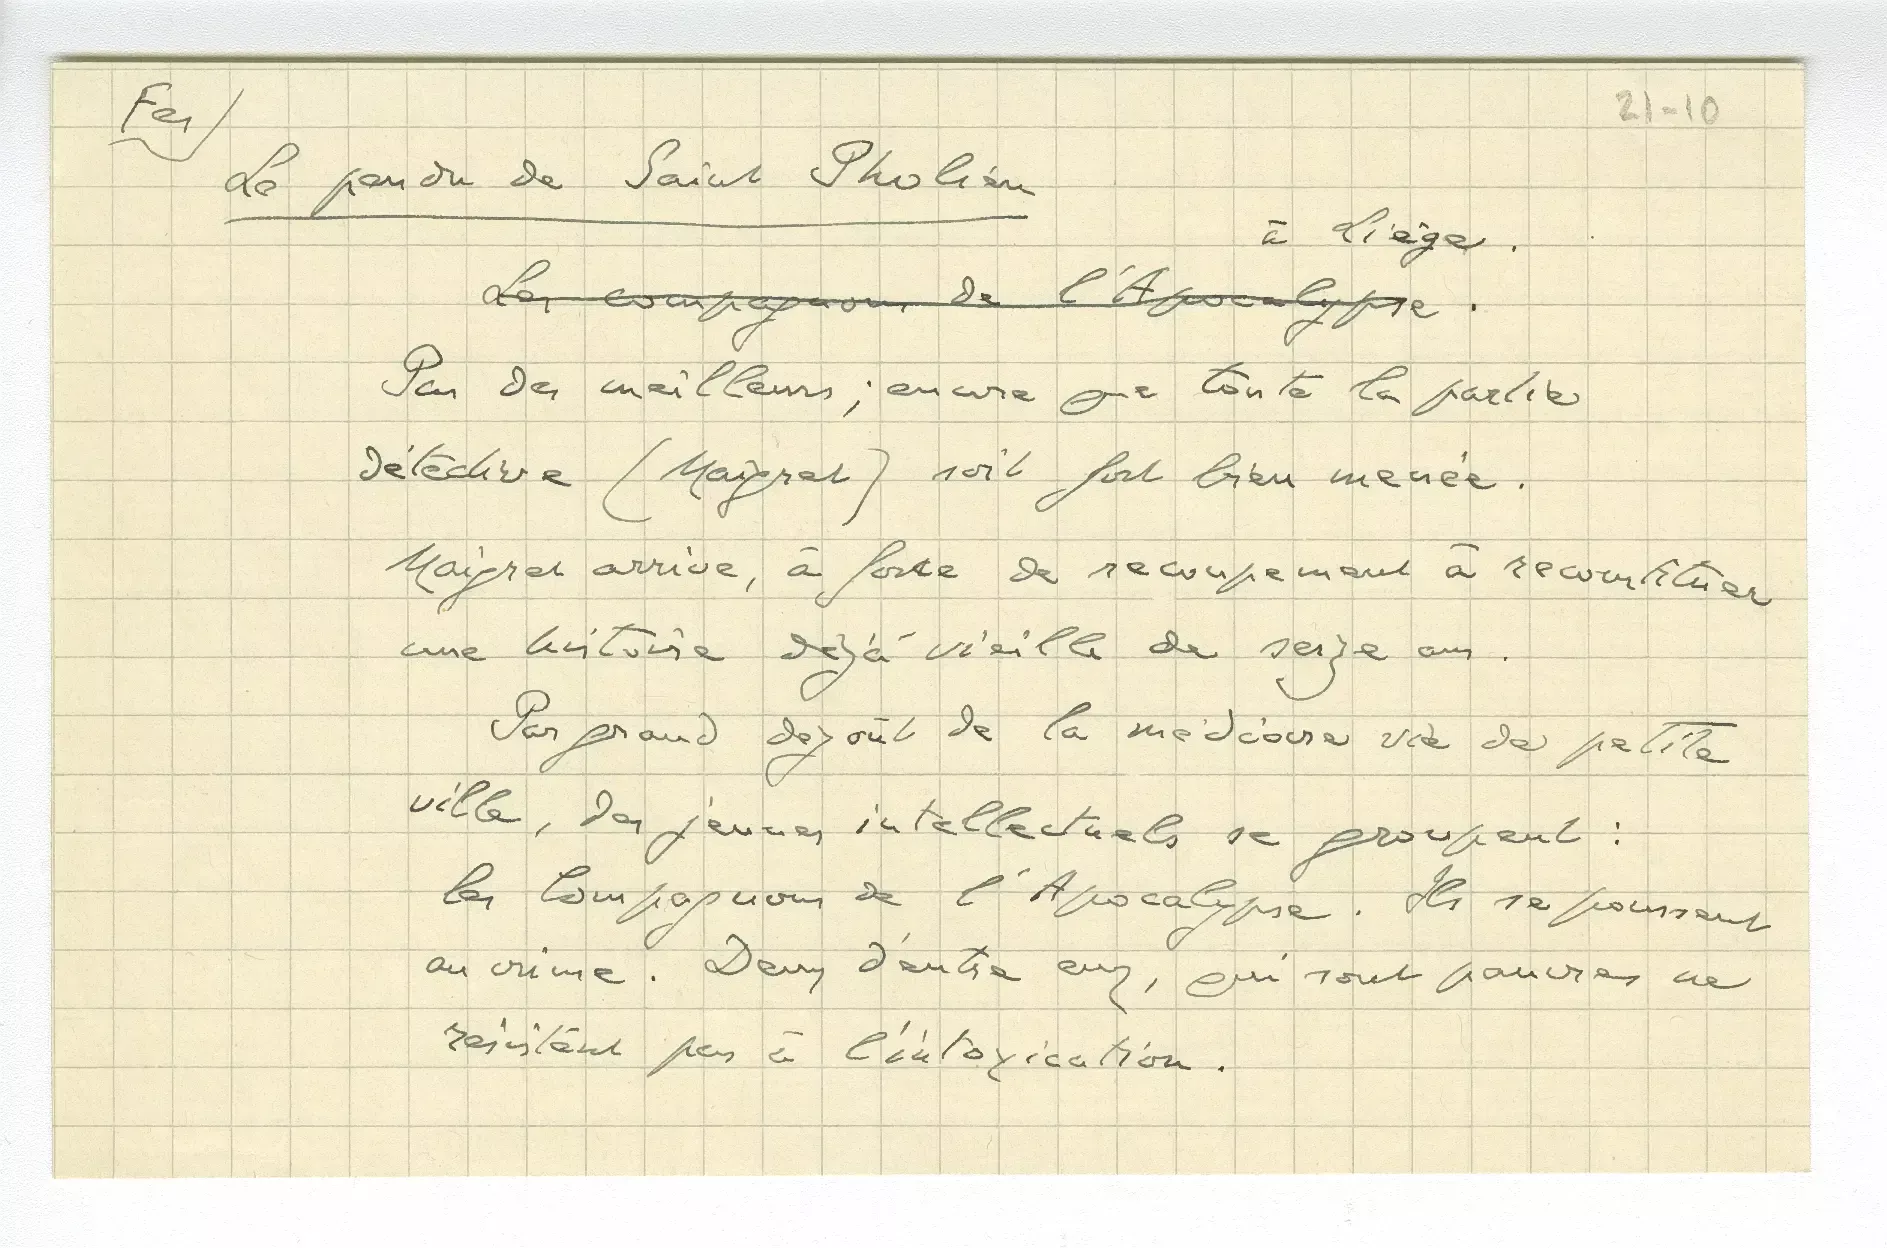 Fes
21-10
Le pendu de Saint Pholien
à Liège.
Les compagnons de l'Apocalypse.
Pas des meilleurs ; encore que toute la partie
détective (Maigret) soit fort bien menée.
Maigret arrive, à force de recoupement à reconstituer
une histoire déjà vieille de seize ans.
Par grand dégoût de la médiocre vie de petite
ville, des jeunes intellectuels se groupent :
les Compagnons de l'Apocalypse. Ils se poussent
au crime. Deux d'entre eux, qui sont pauvres ne
résistent pas à l'intoxication.